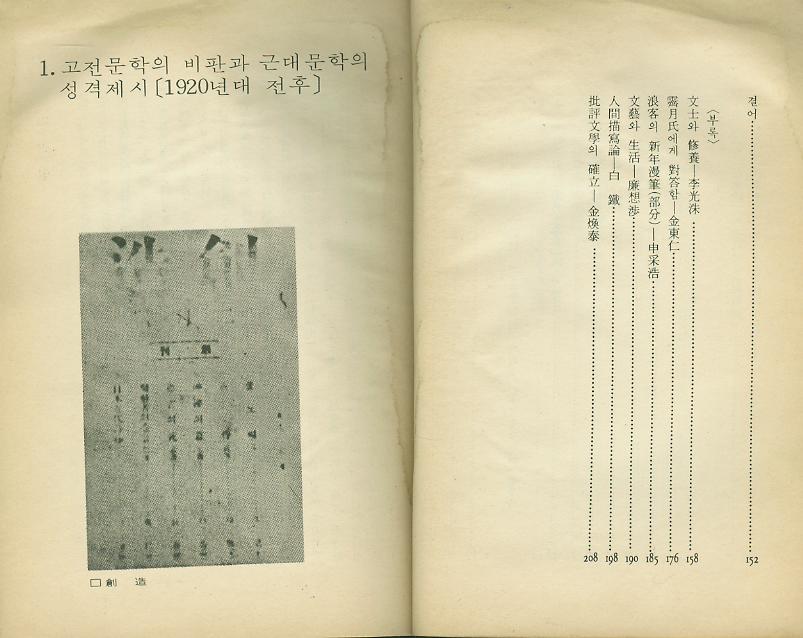 결어……152
〈부록〉
文士와 修養—李光洙……158
霽月氏에게 對答함—金東仁……176
浪客의 新年漫筆(部分)—申采浩……185
文藝와 生活—廉想涉……190
人間描寫論—白 鐵……198
批評文學의 確立—金煥泰……208
1. 고전문학의 비판과 근대문학의
성격제시〔1920년대 전후〕
造創
□創 造